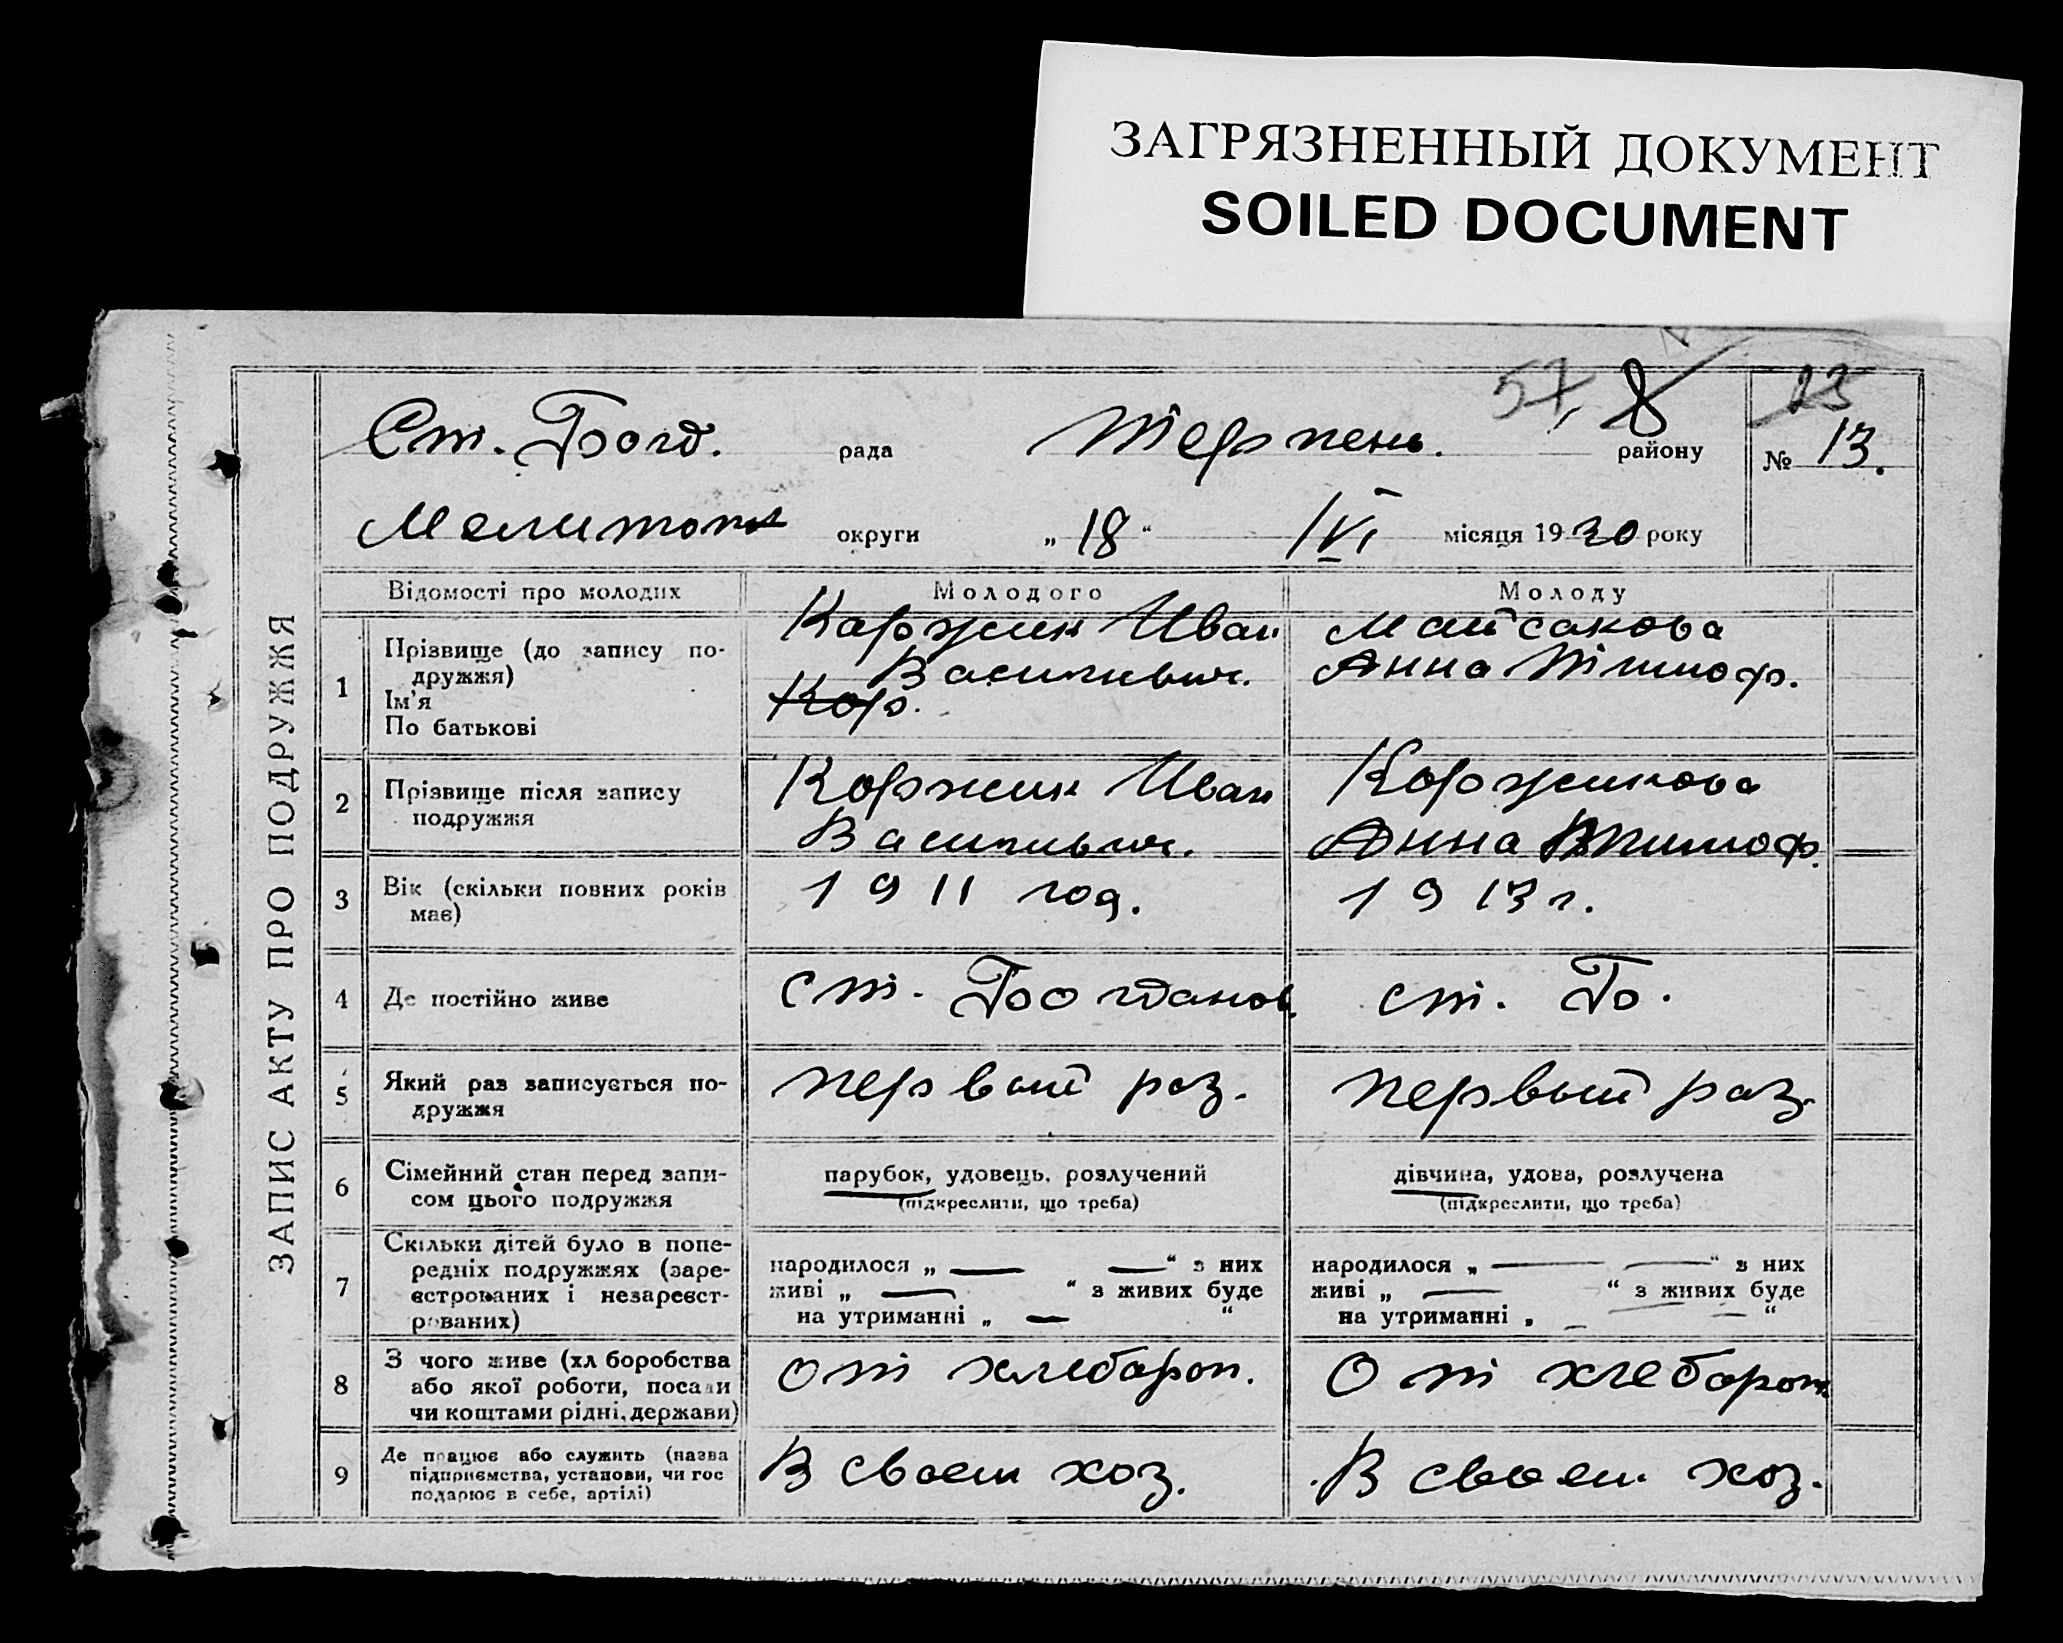 ЗАГРЯЗНЕННЫЙ ДОКУМЕНТ
SOILED DOCUMENT
57, 8 23
Ст. Богд. рада Терпень. району № 13.
Мелитоп округи „ 18 “ /VI місяця 1930 року
ЗАПИС АКТУ ПРО ПОДРУЖЖЯ
Відомості про молодих Молодого Молоду
1 Прізвище (до запису по-
дружжя)
Ім'я
По батькові
Каржик Иван
Васильвич.
Кор.
Майсакова
Анна Тимоф.
2 Прізвище після запису
подружжя
Коржик Иван
Васильвич.
Коржикова
Анна Тимоф.
3 Вік (скільки повних років
має)
1911 год.
1913 г.
4 Де постійно живе
ст. Богданов.
ст. Бо.
5 Який раз записується по-
дружжя
первый раз.
первый раз.
6 Сімейний стан перед запи-
сом цього подружжя
парубок, удовець, розлучений
(підкреслити, що треба)
дівчина, удова, розлучена
(підкреслити, що треба)
7 Скільки дітей було в попе-
редніх подружжях (заре-
єстрованих і незареєст-
рованих)
народилося „ — — “ з них
живі „ — “ з живих буде
на утриманні „ — “
народилося „ — — “ з них
живі „ — “ з живих буде
на утриманні „ — — “
8 З чого живе (хліборобства
або якої роботи, посади
чи коштами рідні, держави)
от хлебароп.
От хлебароп.
9 Де працює або служить (назва
підприємства, установи, чи гос
подарює в себе, артілі)
В своем хоз.
В своем хоз.